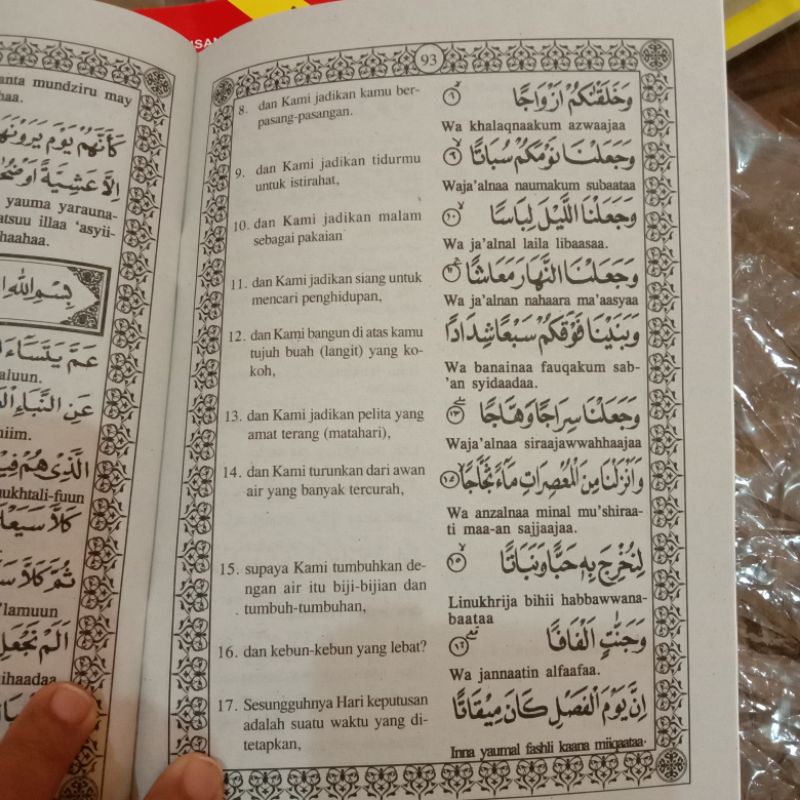 USAN
anta mundziru may
haa.
كَأَنَّهُمْ يَوْمَ يَرَوْنَهَا
اِلَّا عَشِيَّةً اَوْ ضُحٰ
yauma yarauna-
atsuu illaa ‘asyii-
haahaa.
بِسْمِ اللهِ ا
عَمَّ يَتَسَاۤءَ
aluun.
عَنِ النَّبَاِ الْ
niim.
الَّذِيْ هُمْ فِيْ
ukhtali-fuun
كَلَّا سَيَعْ
ثُمَّ كَلَّا سَ
’lamuun
اَلَمْ نَجْعَلِ
ihaadaa
93
8. dan Kami jadikan kamu ber-
pasang-pasangan.
وَخَلَقْنٰكُمْ اَزْوَاجًا
Wa khalaqnaakum azwaajaa
9. dan Kami jadikan tidurmu
untuk istirahat,
وَجَعَلْنَا نَوْمَكُمْ سُبَاتًا ٩
Waja’alnaa naumakum subaataa
10. dan Kami jadikan malam
sebagai pakaian
وَجَعَلْنَا الَّيْلَ لِبَاسًا ١٠
Wa ja’alnal laila libaasaa.
11. dan Kami jadikan siang untuk
mencari penghidupan,
وَجَعَلْنَا النَّهَارَ مَعَاشًا
Wa ja’alnan nahaara ma’aasyaa
12. dan Kami bangun di atas kamu
tujuh buah (langit) yang ko-
koh,
وَبَنَيْنَا فَوْقَكُمْ سَبْعًا شِدَادًا
Wa banainaa fauqakum sab-
’an syidaadaa.
13. dan Kami jadikan pelita yang
amat terang (matahari),
وَجَعَلْنَا سِرَاجًا وَهَّاجًا ١٣
Waja’alnaa siraajawwahhaajaa
14. dan Kami turunkan dari awan
air yang banyak tercurah,
وَاَنْزَلْنَا مِنَ الْمُعْصِرٰتِ مَاۤءً ثَجَّاجًا
Wa anzalnaa minal mu’shiraa-
ti maa-an sajjaajaa.
15. supaya Kami tumbuhkan de-
ngan air itu biji-bijian dan
tumbuh-tumbuhan,
لِنُخْرِجَ بِهٖ حَبًّا وَنَبَاتًا ١٥
Linukhrija bihii habbawwana-
baataa
16. dan kebun-kebun yang lebat?
وَجَنّٰتٍ اَلْفَافًا
Wa jannaatin alfaafaa.
17. Sesungguhnya Hari keputusan
adalah suatu waktu yang di-
tetapkan,
اِنَّ يَوْمَ الْفَصْلِ كَانَ مِيْقَاتًا
Inna yaumal fashli kaana miiqaataa.